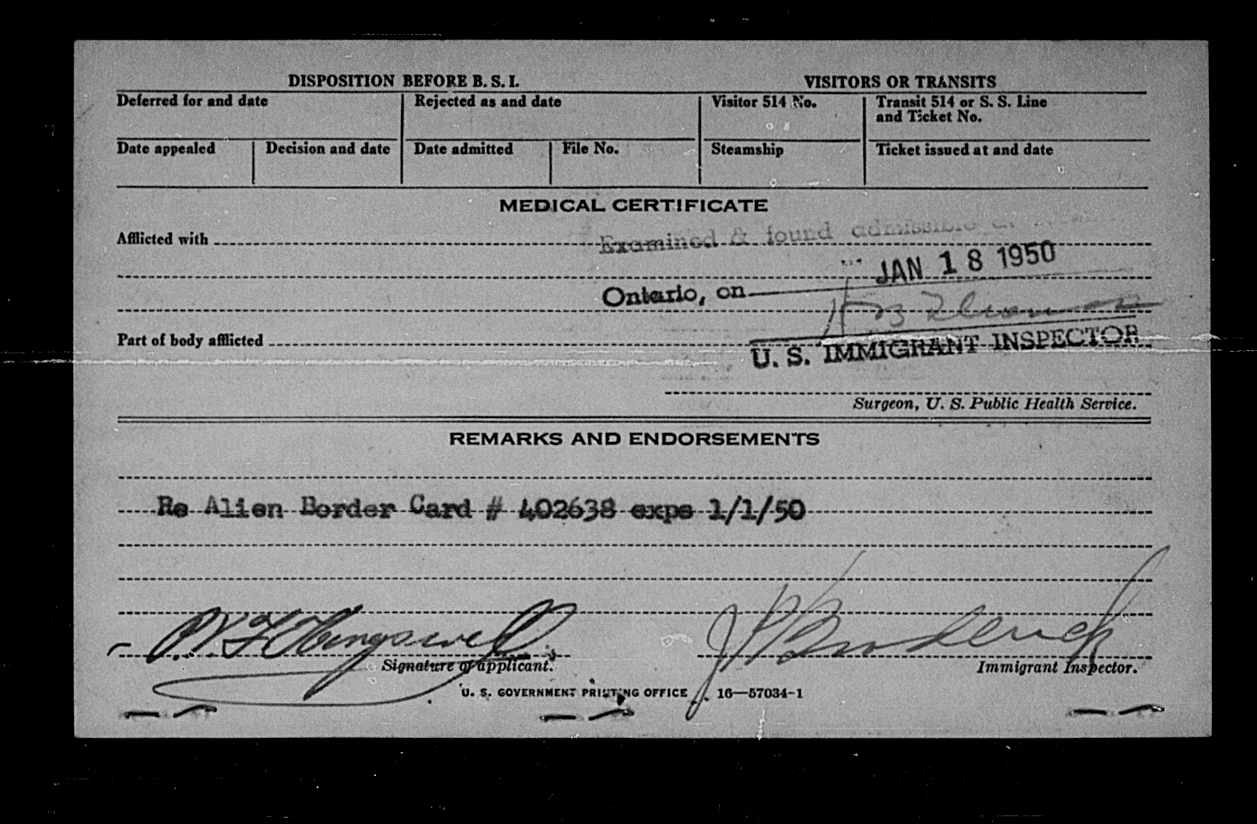 DISPOSITION BEFORE B. S. I.
VISITORS OR TRANSITS
Deferred for and date
Rejected as and date
Visitor 514 No.
Transit 514 or S. S. Line
and Ticket No.
Date appealed
Decision and date
Date admitted
File No.
Steamship
Ticket issued at and date
MEDICAL CERTIFICATE
Afflicted with
Examined & found admissible
JAN 18 1950
Ontario, on
Part of body afflicted
U. S. IMMIGRANT INSPECTOR
Surgeon, U. S. Public Health Service.
REMARKS AND ENDORSEMENTS
Re Alien Border Card # 402638 exps 1/1/50
Signature of applicant.
Immigrant Inspector.
U. S. GOVERNMENT PRINTING OFFICE 16—57034-1